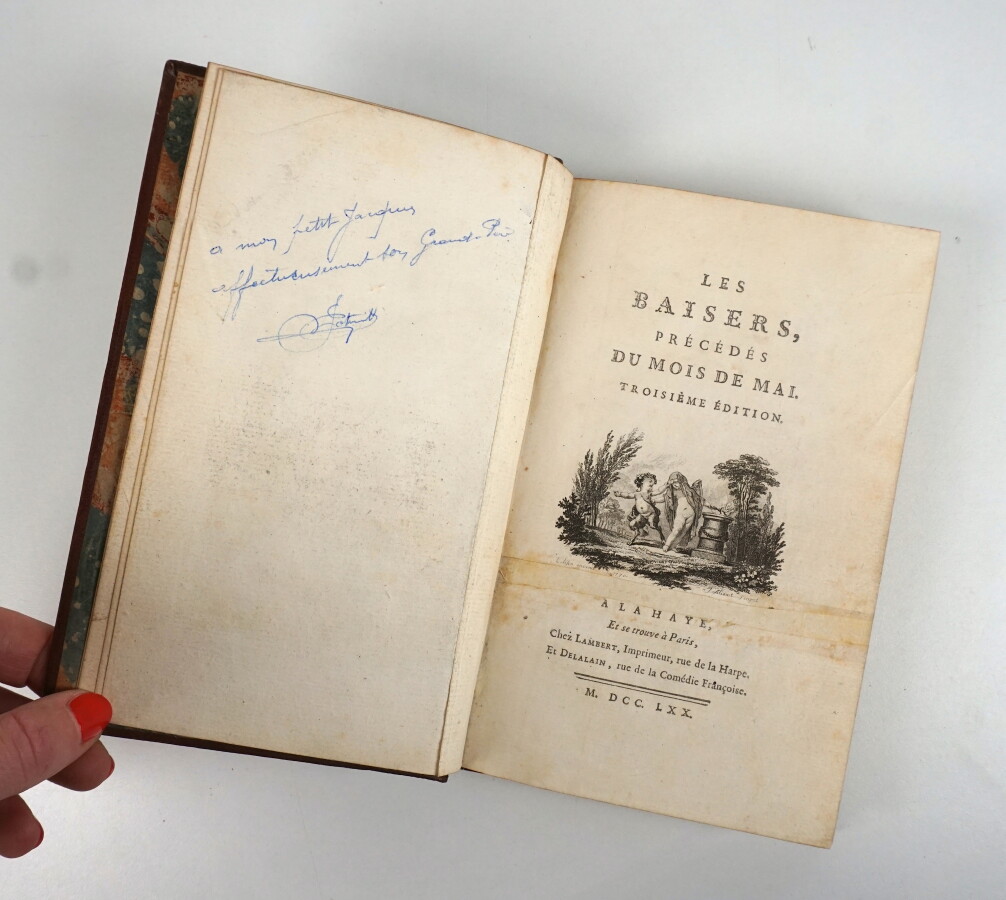 a mon petit Jacques
affectueusement son Grand-Père
LES
BAISERS,
PRÉCÉDÉS
DU MOIS DE MAI.
TROISIÈME ÉDITION.
A LA HAYE,
Et se trouve à Paris,
Chez LAMBERT, Imprimeur, rue de la Harpe.
Et DELALAIN, rue de la Comédie Françoise.
M. DCC. LXX.